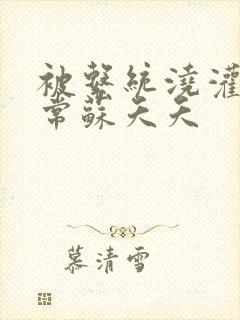 被繫統澆灌
常蘇夭夭
慕清雪